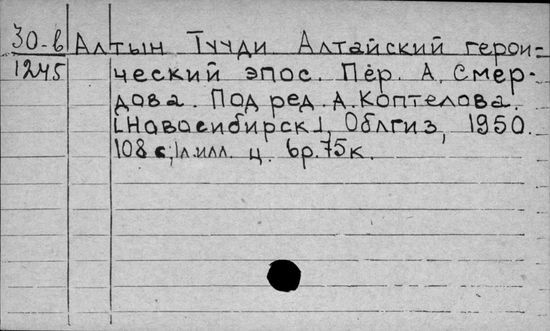 30-в Алтын Тучди Алтайский герои=
1245 ческий эпос. Пер. А. Смер-
дова. Под ред. А. Коптелова.
[Новосибирск], Облгиз, 1950.
108 с; 1л.илл. ц. 6р.75к.